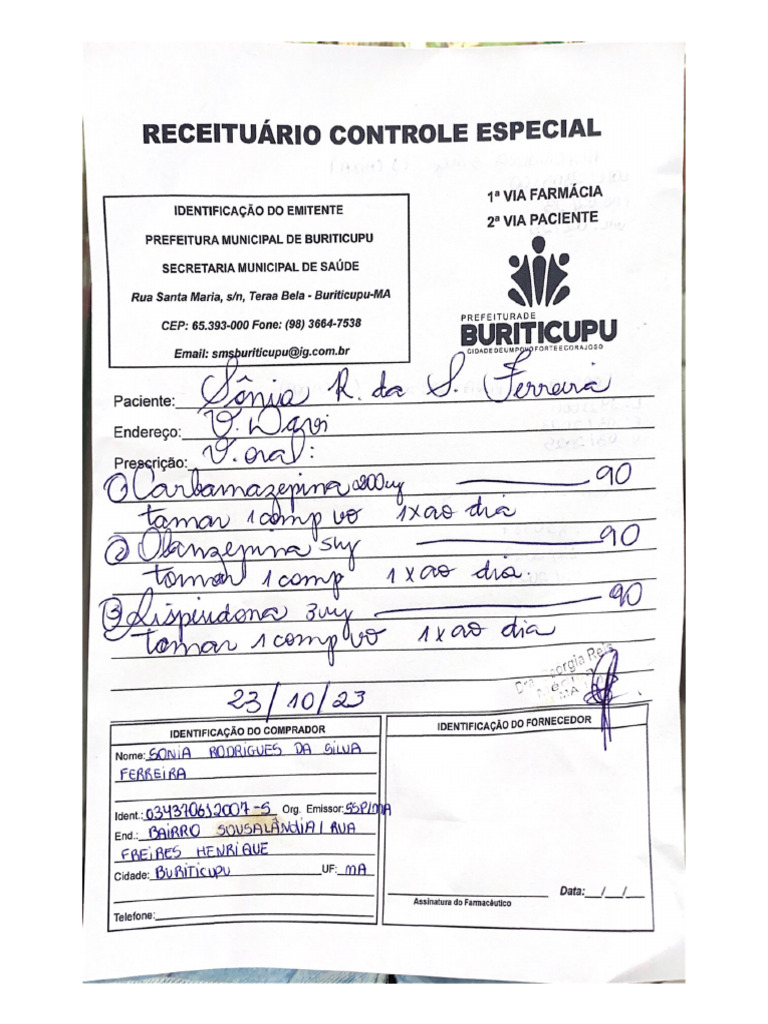 RECEITUÁRIO CONTROLE ESPECIAL
IDENTIFICAÇÃO DO EMITENTE
PREFEITURA MUNICIPAL DE BURITICUPU
SECRETARIA MUNICIPAL DE SAÚDE
Rua Santa Maria, s/n, Teraa Bela - Buriticupu-MA
CEP: 65.393-000 Fone: (98) 3664-7538
Email: smsburiticupu@ig.com.br
1ª VIA FARMÁCIA
2ª VIA PACIENTE
PREFEITURA DE
BURITICUPU
CIDADE DE UM POVO FORTE E CORAJOSO
Paciente: Sônia R. da S. Ferreira
Endereço: V. Davi
Prescrição: V. oral:
① Carbamazepina 200mg 90
tomar 1 comp vo 1x ao dia
② Olanzepina 5mg 90
tomar 1 comp 1x ao dia.
③ Rispiridona 3mg 90
tomar 1 comp vo 1x ao dia
Georgia Reis
23/10/23
IDENTIFICAÇÃO DO COMPRADOR
Nome: SONIA RODRIGUES DA SILVA
FERREIRA
Ident.: 034370612007-5 Org. Emissor: SSP/MA
End.: BAIRRO SOUSALÂNDIA / RUA
FREIRES HENRIQUE
Cidade: BURITICUPU UF: MA
Telefone:
IDENTIFICAÇÃO DO FORNECEDOR
Data: __/__/__
Assinatura do Farmacêutico